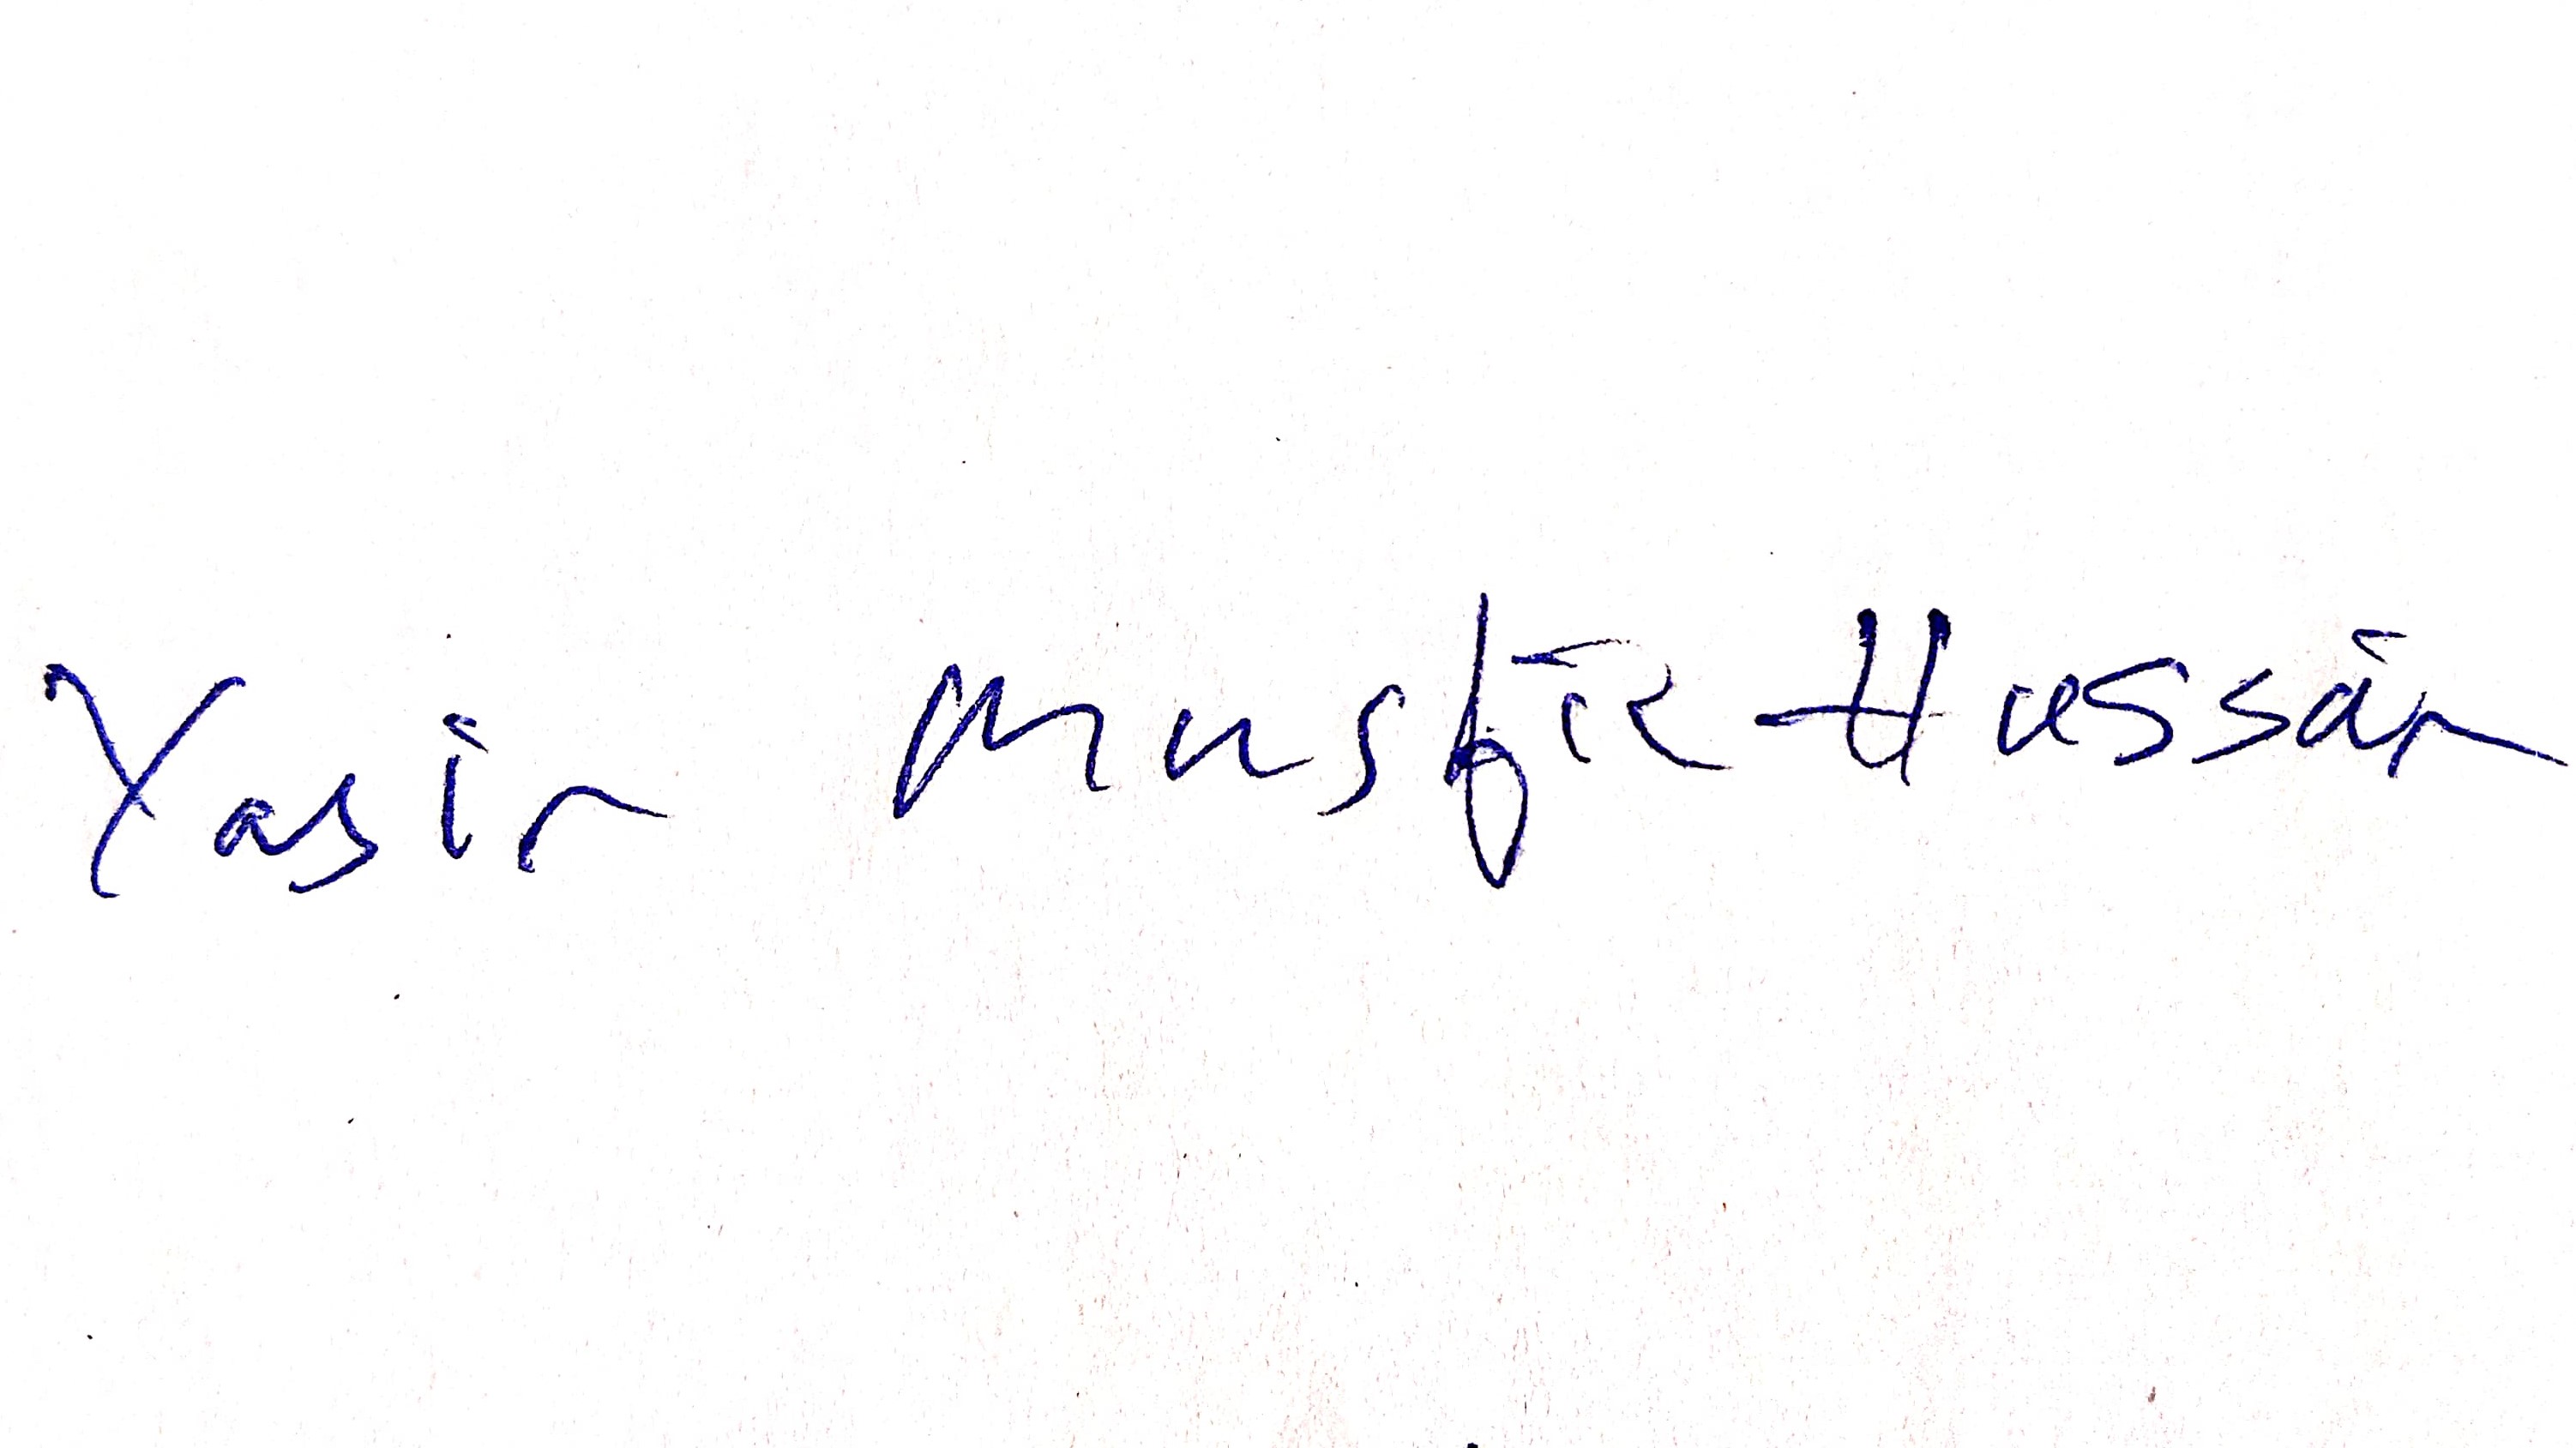 Yasir Musfir Hussain